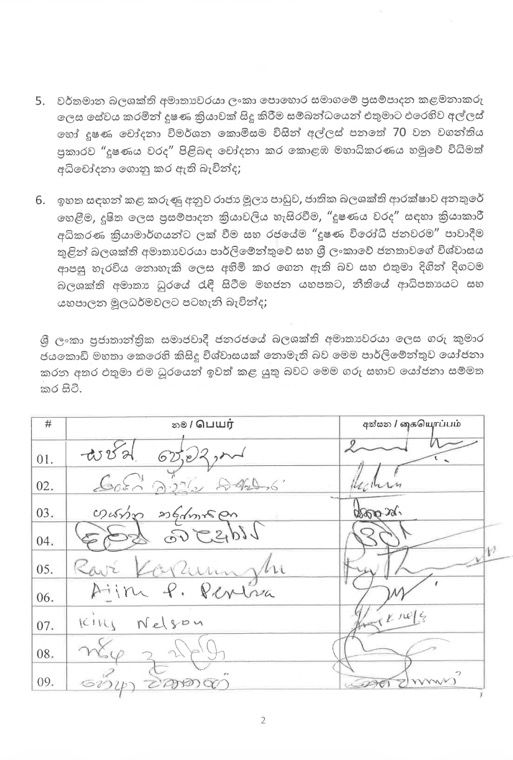 5. වර්තමාන බලශක්ති අමාත්‍යවරයා ලංකා පොහොර සමාගමේ ප්‍රසම්පාදන කළමනාකරු
ලෙස සේවය කරමින් දූෂණ ක්‍රියාවක් සිදු කිරීම සම්බන්ධයෙන් එතුමාට එරෙහිව අල්ලස්
හෝ දූෂණ චෝදනා විමර්ශන කොමිසම විසින් අල්ලස් පනතේ 70 වන වගන්තිය
ප්‍රකාරව “දූෂණය වරද” පිළිබඳ චෝදනා කර කොළඹ මහාධිකරණය හමුවේ විධිමත්
අධිචෝදනා ගොනු කර ඇති බැවින්ද;
6. ඉහත සඳහන් කළ කරුණු අනුව රාජ්‍ය මූල්‍ය පාඩුව, ජාතික බලශක්ති ආරක්ෂාව අනතුරේ
හෙළීම, දූෂිත ලෙස ප්‍රසම්පාදන ක්‍රියාවලිය හැසිරවීම, “දූෂණය වරද” සඳහා ක්‍රියාකාරී
අධිකරණ ක්‍රියාමාර්ගයන්ට ලක් වීම සහ රජයේම “දූෂණ විරෝධී ජනවරම” පාවාදීම
තුළින් බලශක්ති අමාත්‍යවරයා පාර්ලිමේන්තුවේ සහ ශ්‍රී ලංකාවේ ජනතාවගේ විශ්වාසය
ආපසු හැරවිය නොහැකි ලෙස අහිමි කර ගෙන ඇති බව සහ එතුමා දිගින් දිගටම
බලශක්ති අමාත්‍ය ධුරයේ රැඳී සිටීම මහජන යහපතට, නීතියේ ආධිපත්‍යයට සහ
යහපාලන මූලධර්මවලට පටහැනි බැවින්ද;
ශ්‍රී ලංකා ප්‍රජාතාන්ත්‍රික සමාජවාදී ජනරජයේ බලශක්ති අමාත්‍යවරයා ලෙස ගරු කුමාර
ජයකොඩි මහතා කෙරෙහි කිසිදු විශ්වාසයක් නොමැති බව මෙම පාර්ලිමේන්තුව යෝජනා
කරන අතර එතුමා එම ධූරයෙන් ඉවත් කළ යුතු බවට මෙම ගරු සභාව යෝජනා සම්මත
කර සිටී.
# නම / பெயர் අත්සන / கையொப்பம்
01. සජිත් ප්‍රේමදාස
02.
03. ගයන්ත කරුණාතිලක
04.
05. Ravi Karunanayake
06. Ajith P. Perera
07. Kins Nelson
08.
09.
2